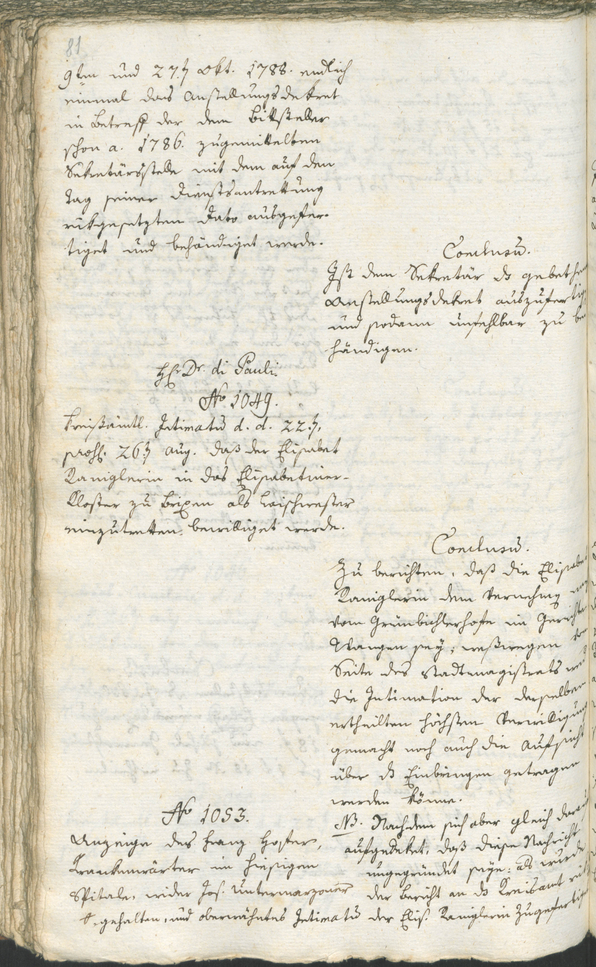 81.
9ten und 27.ten Okt. 1788. endlich
einmal das Anstellungsdekret
in Betreff der dem Bittsteller
schon a. 1786. zugemittelten
Sekretärsstelle mit dem auf den
Tag seiner Dienstsantrettung
rükgesetzten Dato ausgefer-
tiget und behändiget werde.
Conclusū.
Ist dem Sekretär ds gebethe
Anstellungsdekret auszufertig
und sodann unfehlbar zu be
händigen.
H. Dr. di Pauli
No 1049.
Kreisämtl. Intimatū d. d. 22.ten,
prост. 26ten Aug. daß der Elisabet
Raniglerin in das Elisabetiner-
Kloster zu Brixen als Laischwester
einzutretten, bewilliget werde.
Conclusū.
Zu berichten, daß die Elisabet
Raniglerin dem Vernehmen nach
vom Grünbichlerhofe im Gerichte
Wangen sey; weßwegen von
Seite des Stadtmagistrats weder
die Intimation der derselben
ertheilten höchsten Verwilligung
gemacht noch auch die Aufsicht
über ds Einbringen getragen
werden könne.
NB. Nachdem sich aber gleich darauf
aufgedekt, daß diese Nachricht
ungegründet seye: als wurde
der Bericht an ds Kreisamt
No 1053.
Anzeige des Franz Hoster,
Krankenwärter im hiesigen
Spitale, wider Jos. Untermarzoner
gehalten, und oberwähntes Intimatū der Elis. Raniglerin zugefertiget